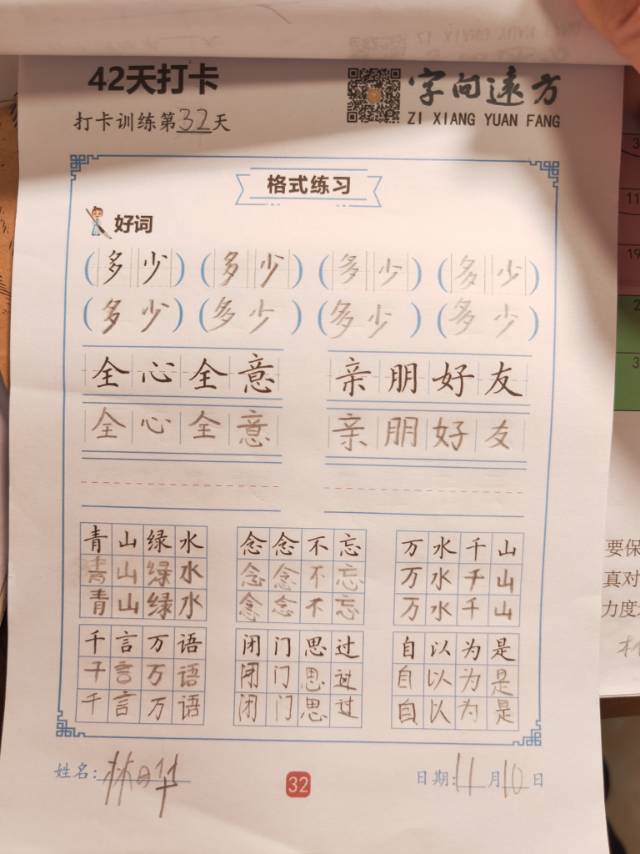 42天打卡
字向远方
打卡训练第32天
ZI XIANG YUAN FANG
格式练习
好词
(多少) (多少) (多少) (多少)
(多少) (多少) (多少) (多少)
全心全意 亲朋好友
全心全意 亲朋好友
青山绿水 念念不忘 万水千山
青山绿水 念念不忘 万水千山
青山绿水 念念不忘 万水千山
千言万语 闭门思过 自以为是
千言万语 闭门思过 自以为是
千言万语 闭门思过 自以为是
姓名: 32 日期:11月10日
要保
真对
力度